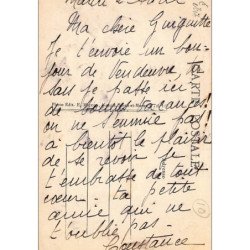 Mardi 2 Août
Ma chère Guiguitte
Je t'envoie un bon-
jour de Vendeuvre,
où je passe
de bonnes vacances!
on ne s'ennuie pas!
à bientôt le plaisir
de se revoir je
t'embrasse de tout
cœur - ta petite
amie qui ne
t'oublie pas -
Constance
CARTE POSTALE